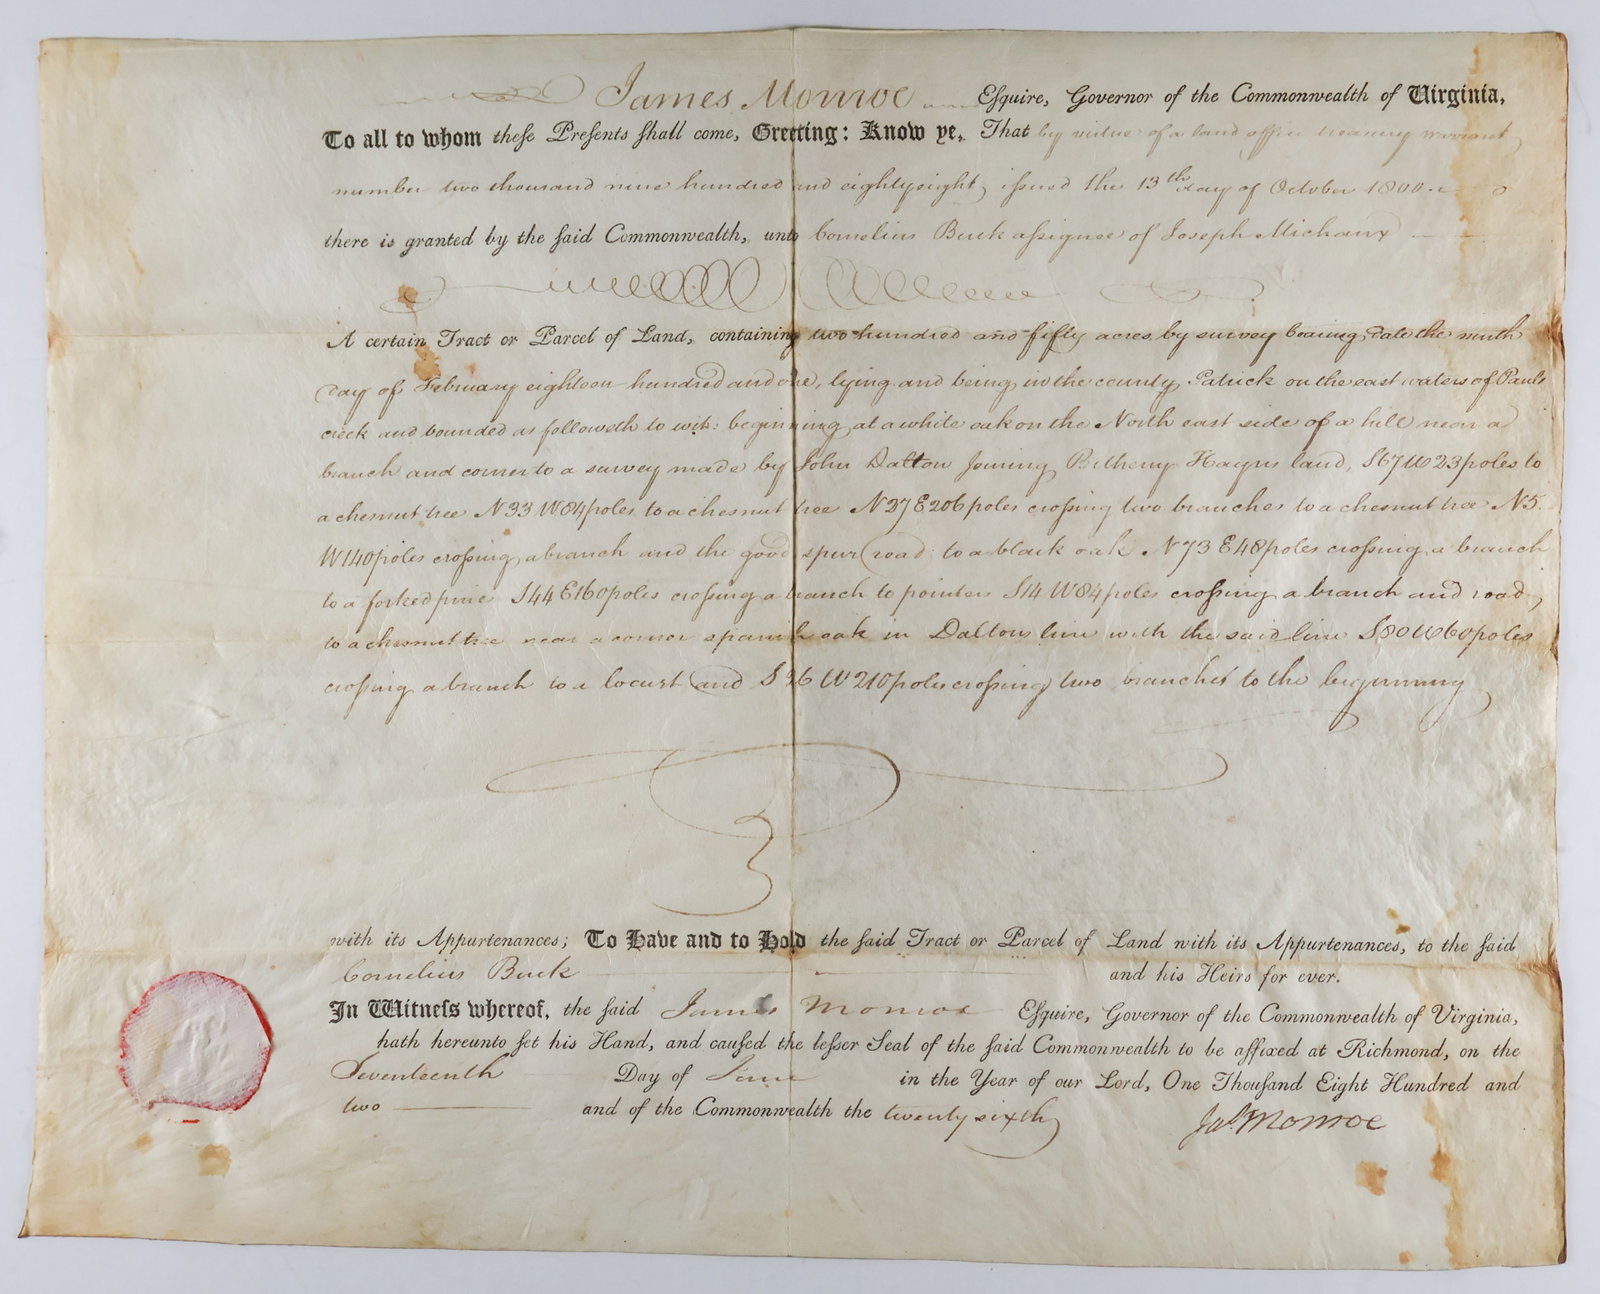 James Monroe Esquire, Governor of the Commonwealth of Virginia,
To all to whom these Presents shall come, Greeting: Know ye, That by virtue of a land office treasury warrant
number two thousand nine hundred and eighty eight, issued the 13th day of October 1800.
there is granted by the said Commonwealth, unto Cornelius Buck assignee of Joseph Michaux
A certain Tract or Parcel of Land, containing two hundred and fifty acres by survey bearing date the ninth
day of February eighteen hundred and one, lying and being in the county Patrick on the east waters of Pauls
creek and bounded as followeth to wit: beginning at a white oak on the North east side of a hill near a
branch and corner to a survey made by John Dalton Joining Betheny Haynes land, S67W23poles to
a chesnut tree N33W84poles to a chesnut tree N27E206poles crossing two branches to a chesnut tree N5.
W140poles crossing a branch and the good spur road to a black oak N73E48poles crossing a branch
to a forked pine S44E160poles crossing a branch to pointers S14W84poles crossing a branch and road,
to a chesnut tree near a corner spanish oak in Daltons line with the said line S80W60poles
crossing a branch to a locust and S26W210poles crossing two branches to the beginning
with its Appurtenances; To Have and to Hold the said Tract or Parcel of Land with its Appurtenances, to the said
Cornelius Buck and his Heirs for ever.
In Witness whereof, the said James Monroe Esquire, Governor of the Commonwealth of Virginia,
hath hereunto set his Hand, and caused the lesser Seal of the said Commonwealth to be affixed at Richmond, on the
Seventeenth Day of June in the Year of our Lord, One Thousand Eight Hundred and
two and of the Commonwealth the twenty sixth
Jas. Monroe